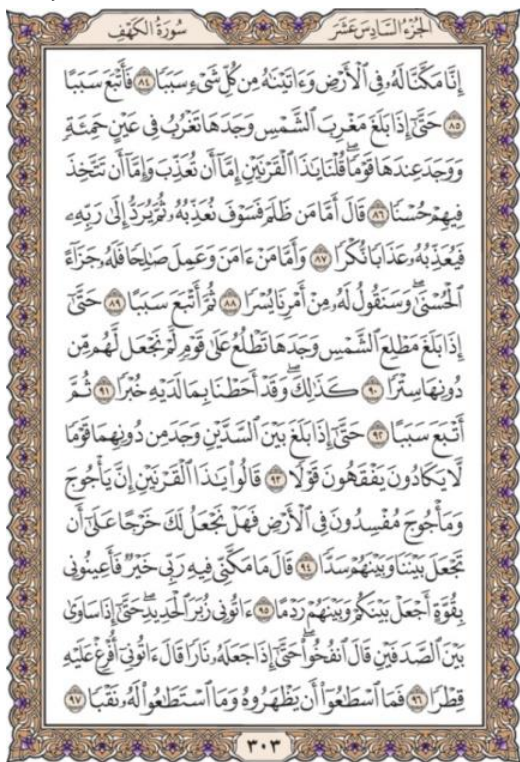 الجُزْءُ السَّادِسَ عَشَرَ
سُورَةُ الكَهْفِ
إِنَّا مَكَّنَّا لَهُۥ فِى ٱلْأَرْضِ وَءَاتَيْنَٰهُ مِن كُلِّ شَىْءٍ سَبَبًا ٨٤ فَأَتْبَعَ سَبَبًا
٨٥ حَتَّىٰٓ إِذَا بَلَغَ مَغْرِبَ ٱلشَّمْسِ وَجَدَهَا تَغْرُبُ فِى عَيْنٍ حَمِئَةٍ
وَوَجَدَ عِندَهَا قَوْمًا ۗ قُلْنَا يَٰذَا ٱلْقَرْنَيْنِ إِمَّآ أَن تُعَذِّبَ وَإِمَّآ أَن تَتَّخِذَ
فِيهِمْ حُسْنًا ٨٦ قَالَ أَمَّا مَن ظَلَمَ فَسَوْفَ نُعَذِّبُهُۥ ثُمَّ يُرَدُّ إِلَىٰ رَبِّهِۦ
فَيُعَذِّبُهُۥ عَذَابًا نُّكْرًا ٨٧ وَأَمَّا مَنْ ءَامَنَ وَعَمِلَ صَٰلِحًا فَلَهُۥ جَزَآءً
ٱلْحُسْنَىٰ ۖ وَسَنَقُولُ لَهُۥ مِنْ أَمْرِنَا يُسْرًا ٨٨ ثُمَّ أَتْبَعَ سَبَبًا ٨٩ حَتَّىٰٓ
إِذَا بَلَغَ مَطْلِعَ ٱلشَّمْسِ وَجَدَهَا تَطْلُعُ عَلَىٰ قَوْمٍ لَّمْ نَجْعَل لَّهُم مِّن
دُونِهَا سِتْرًا ٩٠ كَذَٰلِكَ وَقَدْ أَحَطْنَا بِمَا لَدَيْهِ خُبْرًا ٩١ ثُمَّ
أَتْبَعَ سَبَبًا ٩٢ حَتَّىٰٓ إِذَا بَلَغَ بَيْنَ ٱلسَّدَّيْنِ وَجَدَ مِن دُونِهِمَا قَوْمًا
لَّا يَكَادُونَ يَفْقَهُونَ قَوْلًا ٩٣ قَالُوا۟ يَٰذَا ٱلْقَرْنَيْنِ إِنَّ يَأْجُوجَ
وَمَأْجُوجَ مُفْسِدُونَ فِى ٱلْأَرْضِ فَهَلْ نَجْعَلُ لَكَ خَرْجًا عَلَىٰٓ أَن
تَجْعَلَ بَيْنَنَا وَبَيْنَهُمْ سَدًّا ٩٤ قَالَ مَا مَكَّنِّى فِيهِ رَبِّى خَيْرٌ فَأَعِينُونِى
بِقُوَّةٍ أَجْعَلْ بَيْنَكُمْ وَبَيْنَهُمْ رَدْمًا ٩٥ ءَاتُونِى زُبَرَ ٱلْحَدِيدِ ۖ حَتَّىٰٓ إِذَا سَاوَىٰ
بَيْنَ ٱلصَّدَفَيْنِ قَالَ ٱنفُخُوا۟ ۖ حَتَّىٰٓ إِذَا جَعَلَهُۥ نَارًا قَالَ ءَاتُونِىٓ أُفْرِغْ عَلَيْهِ
قِطْرًا ٩٦ فَمَا ٱسْطَٰعُوٓا۟ أَن يَظْهَرُوهُ وَمَا ٱسْتَطَٰعُوا۟ لَهُۥ نَقْبًا ٩٧
٣٠٣